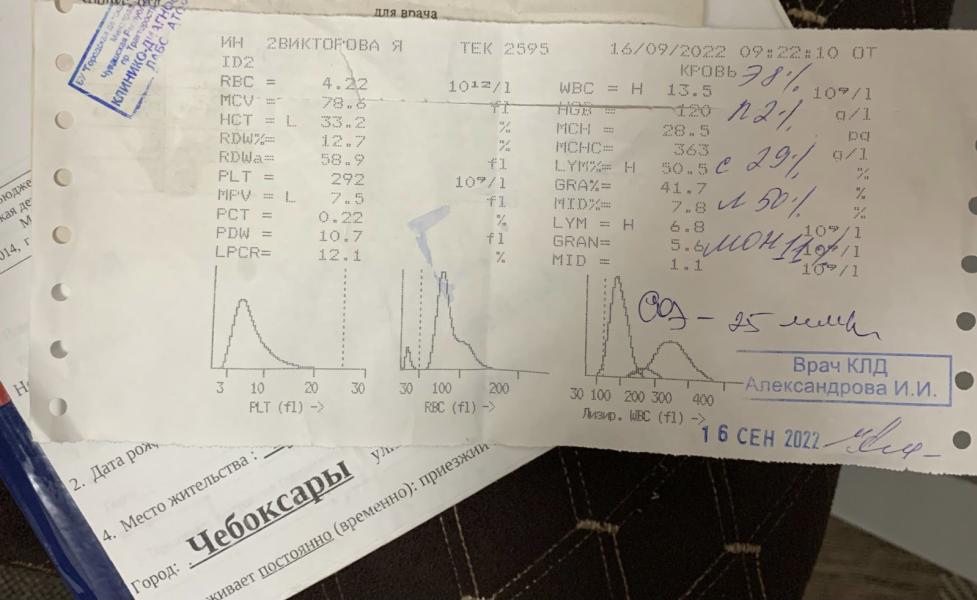 для врача
БУ "Городская
КЛИНИКО-ДИАГНОС
ИН 2ВИКТОРОВА Я ТЕК 2595 16/09/2022 09:22:10 ОТ
ID2 КРОВЬ Э8%
RBC = 4.22 10¹²/l WBC = H 13.5 10⁹/l
MCV = 78.6 fl HGB = 120 g/l п2%
HCT = L 33.2 % MCH = 28.5 pg
RDW%= 12.7 % MCHC= 363 g/l
RDWa= 58.9 fl LYM%= H 50.5 % с 29%
PLT = 292 10⁹/l GRA%= 41.7 %
MPV = L 7.5 fl MID%= 7.8 % л 50%
PCT = 0.22 % LYM = H 6.8 10⁹/l
PDW = 10.7 fl GRAN= 5.6 10⁹/l мон 11%
LPCR= 12.1 % MID = 1.1 10⁹/l
СОЭ - 25 мм/ч
3 10 20 30
PLT (fl) ->
30 100 200
RBC (fl) ->
30 100 200 300 400
Лизир. WBC (fl) ->
Врач КЛД
Александрова И.И.
16 СЕН 2022
014, г
2. Дата рож
4. Место жительства :
Город: Чебоксары
живает постоянно (временно): приезжий